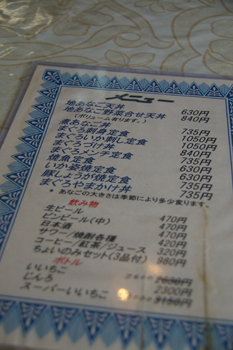 メニュー
地あなご天丼 630円
地あなご野菜合せ天丼 840円
(ボリューム有ります。)
煮あなご丼
まぐろ刺身定食 735円
まぐろいか刺し定食 1050円
まぐろづけ丼 840円
まぐろメンチ定食 735円
焼魚定食 735円
いか姿焼定食 735円
豚しょうが焼定食 735円
まぐろやまかけ丼 735円
(あなごの大きさは季節により多少変ります。)
飲み物
生ビール 470円
ビンビール(中) 470円
日本酒 420円
サワー/焼酎各種 420円
コーヒー/紅茶/ジュース 320円
ちょいのみセット(3品付) 980円
ボトル
いいちこ
じんろ 2300円
スーパーいいちこ